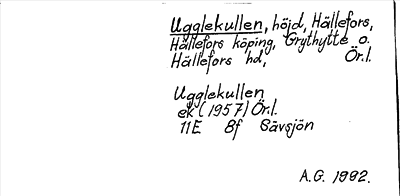 Ugglekullen, höjd, Hällefors,
Hällefors köping, Grythytte o.
Hällefors hd, Ör.l.
Ugglekullen
ek (1957) Ör.l.
11E 8f Sävsjön
A.G. 1992.